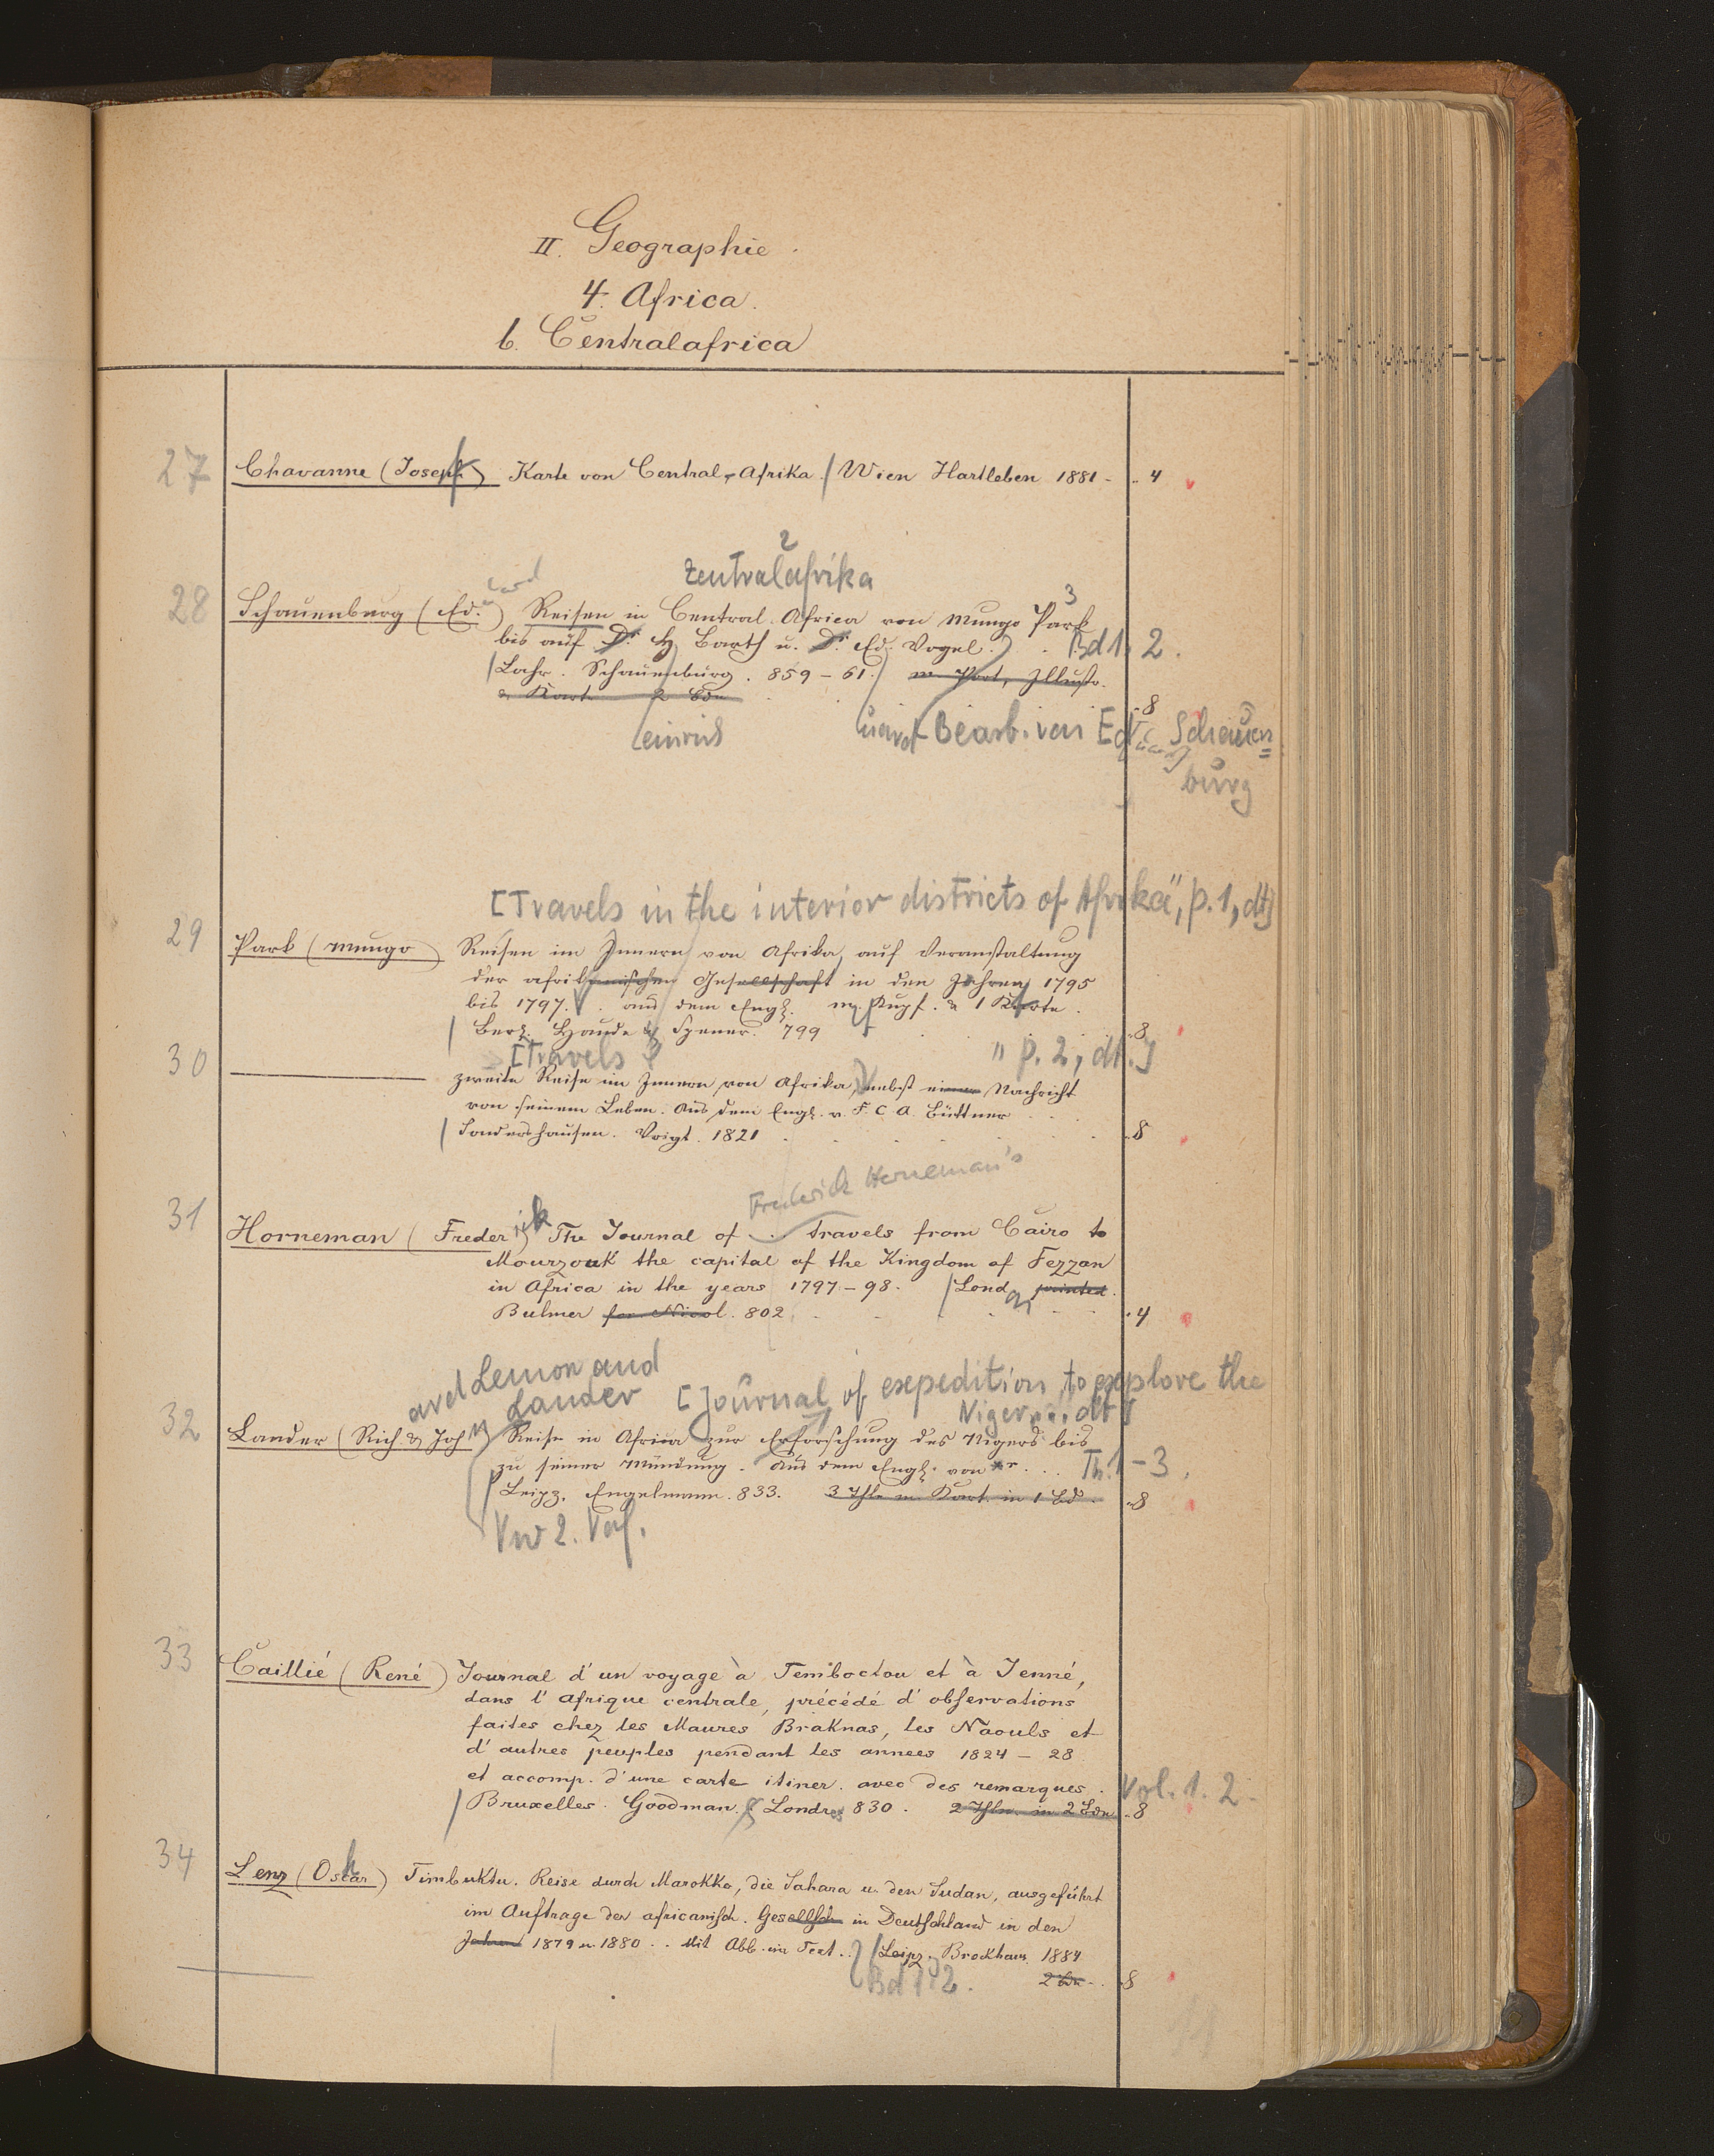 II. Geographie.
4. Africa.
b. Centralafrica
27 Chavanne (Joseph) Karte von Central-Afrika. / Wien Hartleben 1881 - .. 4
2
Zentralafrika
28 Schauenburg (Ed.uard) Reisen in Central. Africa von Mungo Park 3
bis auf Dr. H. Barth u. Dr. Ed. Vogel. Bd 1. 2.
/ Lahr. Schauenburg. 859-61. / m. Port, Illustr.
& Kart. 2 Bde .8
einrich uard Bearb. von Eduard Schauen=
burg
[Travels in the interior districts of Afrika", p. 1, dt]
29 Park (Mungo) Reisen im Innern von Afrika, auf Veranstaltung
der afrikanischen Gesellschaft in den Jahren 1795
bis 1797. aus dem Engl. m Kupf. & 1 Karte.
/ Berl. Haude & Spener. 799 .8
[Travels " p. 2, dt.]
30 zweite Reise im Innern von Afrika, nebst einer Nachricht
von seinem Leben. Aus dem Engl. v. F. C. A. Büttner
/ Sondershausen. Voigt. 1821 .8
Frederick Horneman's
31 Horneman (Frederick) The Journal of .. travels from Cairo to
Mourzouk the capital of the Kingdom of Fezzan
in Africa in the years 1797-98. / Lond printed.
Bulmer for Nicol. 802. .4
Lemon and
Lander [Journal of expedition to explore the
Niger ... dt]
32 Lander (Rich. & John) Reise in Africa zur Erforschung des Nigers bis
zu seiner Mündung. Aus dem Engl. von *r. .. Th. 1-3.
/ Leipz. Engelmann. 833. 3 Thle m. Kart. in 1 Bd. .8
Vw 2. Verf.
33 Caillié (René) Journal d'un voyage à Temboctou et à Jenné,
dans l'Afrique centrale, précédé d'observations
faites chez les Maures Braknas, les Naouls et
d'autres peuples pendant les annees 1824-28
et accomp. d'une carte itiner. avec des remarques. Vol. 1. 2.
/ Bruxelles. Goodman. & Londres 830. 2 Thle. in 2 Bdn .8
34 Lenz (Oskar) Timbuktu. Reise durch Marokko, die Sahara u. den Sudan, ausgeführt
im Auftrage der africanisch. Gesellsch in Deutschland in den
Jahren 1879 u. 1880. . Mit Abb. im Text. . / Leipz. Brockhaus 1884
Bd 1. 2. 2 Bde .8